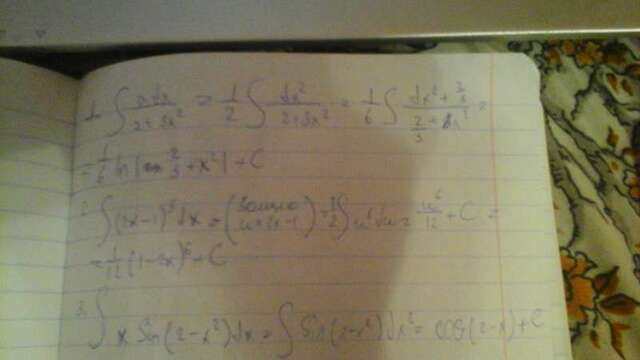 1. ∫ x dx / (2+3x²) = 1/2 ∫ dx² / (2+3x²) = 1/6 ∫ (dx² + 2/3) / (2/3 + x²) =
= 1/6 ln|2/3 + x²| + C
2. ∫ (2x-1)⁵ dx = (Замена u=2x-1) = 1/2 ∫ u⁵ du = u⁶/12 + C =
= 1/12 (1-2x)⁶ + C
3. ∫ x sin(2-x²) dx = ∫ sin(2-x²) dx² = cos(2-x) + C